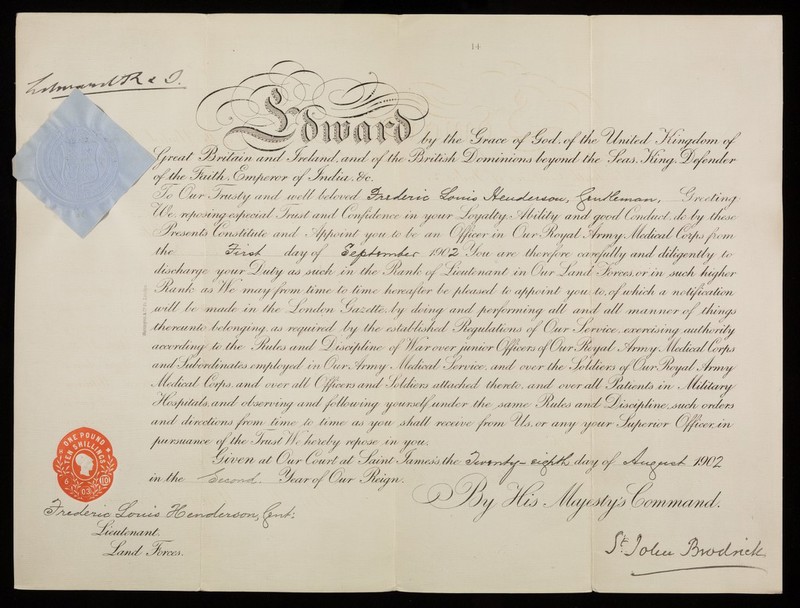 14
Edward R & I.
Edward by the Grace of God, of the United Kingdom of
Great Britain and Ireland, and of the British Dominions beyond the Seas, King, Defender
of the Faith, Emperor of India, &c.
To Our Trusty and well beloved Frederic Louis Henderson, Gentleman, Greeting
We, reposing especial Trust and Confidence in your Loyalty, Ability and good Conduct, do by these
Presents Constitute and Appoint you to be an Officer in Our Royal Army Medical Corps from
the First day of September 1902 You are therefore carefully and diligently to
discharge your Duty as such in the Rank of Lieutenant in Our Land Forces, or in such higher
Rank as We may from time to time hereafter be pleased to appoint you to, of which a notification
will be made in the London Gazette, by doing and performing all and all manner of things
thereunto belonging, as required by the established Regulations of Our Service, exercising authority
according to the Rules and Discipline of War over junior Officers of Our Royal Army Medical Corps
and Subordinates employed in Our Army Medical Service, and over the Soldiers of Our Royal Army
Medical Corps, and over all Officers and Soldiers attached thereto, and over all Patients in Military
Hospitals, and observing and following yourself under the same Rules and Discipline, such orders
and directions from time to time as you shall receive from Us, or any your Superior Officer, in
pursuance of the Trust We hereby repose in you.
Given at Our Court at Saint James's, the Twenty-eighth day of August 1902
in the Second Year of Our Reign.
By His Majesty's Command.
ONE POUND
TEN SHILLINGS
6 03
Frederic Louis Henderson, Gent:
Lieutenant.
Land Forces.
St. John Brodrick